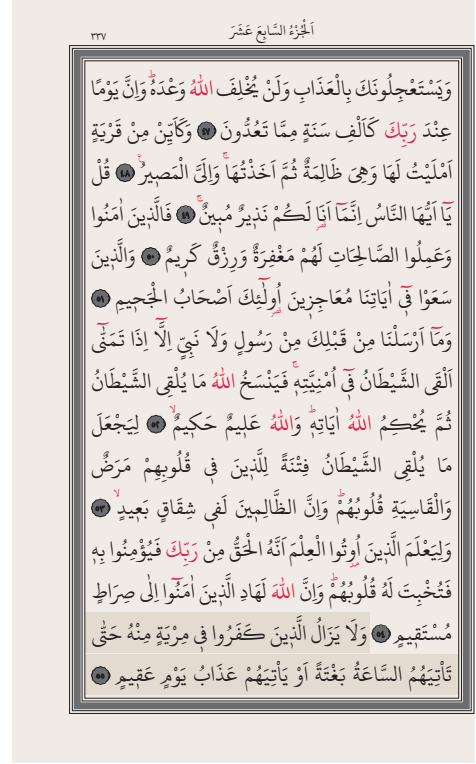 ٣٣٧ اَلْجُزْءُ السَّابِعَ عَشَرَ
وَيَسْتَعْجِلُونَكَ بِالْعَذَابِ وَلَنْ يُخْلِفَ اللّٰهُ وَعْدَهُۜ وَاِنَّ يَوْمًا
عِنْدَ رَبِّكَ كَاَلْفِ سَنَةٍ مِمَّا تَعُدُّونَ ﴿٤٧﴾ وَكَاَيِّنْ مِنْ قَرْيَةٍ
اَمْلَيْتُ لَهَا وَهِيَ ظَالِمَةٌ ثُمَّ اَخَذْتُهَاۚ وَاِلَيَّ الْمَصٖيرُ۟ ﴿٤٨﴾ قُلْ
يَٓا اَيُّهَا النَّاسُ اِنَّمَٓا اَنَا۬ لَكُمْ نَذٖيرٌ مُبٖينٌۚ ﴿٤٩﴾ فَالَّذٖينَ اٰمَنُوا
وَعَمِلُوا الصَّالِحَاتِ لَهُمْ مَغْفِرَةٌ وَرِزْقٌ كَرٖيمٌ ﴿٥٠﴾ وَالَّذٖينَ
سَعَوْا فٖٓي اٰيَاتِنَا مُعَاجِزٖينَ اُو۬لٰٓئِكَ اَصْحَابُ الْجَحٖيمِ ﴿٥١﴾
وَمَٓا اَرْسَلْنَا مِنْ قَبْلِكَ مِنْ رَسُولٍ وَلَا نَبِيٍّ اِلَّٓا اِذَا تَمَنّٰٓى
اَلْقَى الشَّيْطَانُ فٖٓي اُمْنِيَّتِهٖۚ فَيَنْسَخُ اللّٰهُ مَا يُلْقِي الشَّيْطَانُ
ثُمَّ يُحْكِمُ اللّٰهُ اٰيَاتِهٖۜ وَاللّٰهُ عَلٖيمٌ حَكٖيمٌۙ ﴿٥٢﴾ لِيَجْعَلَ
مَا يُلْقِي الشَّيْطَانُ فِتْنَةً لِلَّذٖينَ فٖي قُلُوبِهِمْ مَرَضٌ
وَالْقَاسِيَةِ قُلُوبُهُمْۜ وَاِنَّ الظَّالِمٖينَ لَفٖي شِقَاقٍ بَعٖيدٍۙ ﴿٥٣﴾
وَلِيَعْلَمَ الَّذٖينَ اُو۫تُوا الْعِلْمَ اَنَّهُ الْحَقُّ مِنْ رَبِّكَ فَيُؤْمِنُوا بِهٖ
فَتُخْبِتَ لَهُ قُلُوبُهُمْۜ وَاِنَّ اللّٰهَ لَهَادِ الَّذٖينَ اٰمَنُٓوا اِلٰى صِرَاطٍ
مُسْتَقٖيمٍ ﴿٥٤﴾ وَلَا يَزَالُ الَّذٖينَ كَفَرُوا فٖي مِرْيَةٍ مِنْهُ حَتّٰى
تَأْتِيَهُمُ السَّاعَةُ بَغْتَةً اَوْ يَأْتِيَهُمْ عَذَابُ يَوْمٍ عَقٖيمٍ ﴿٥٥﴾